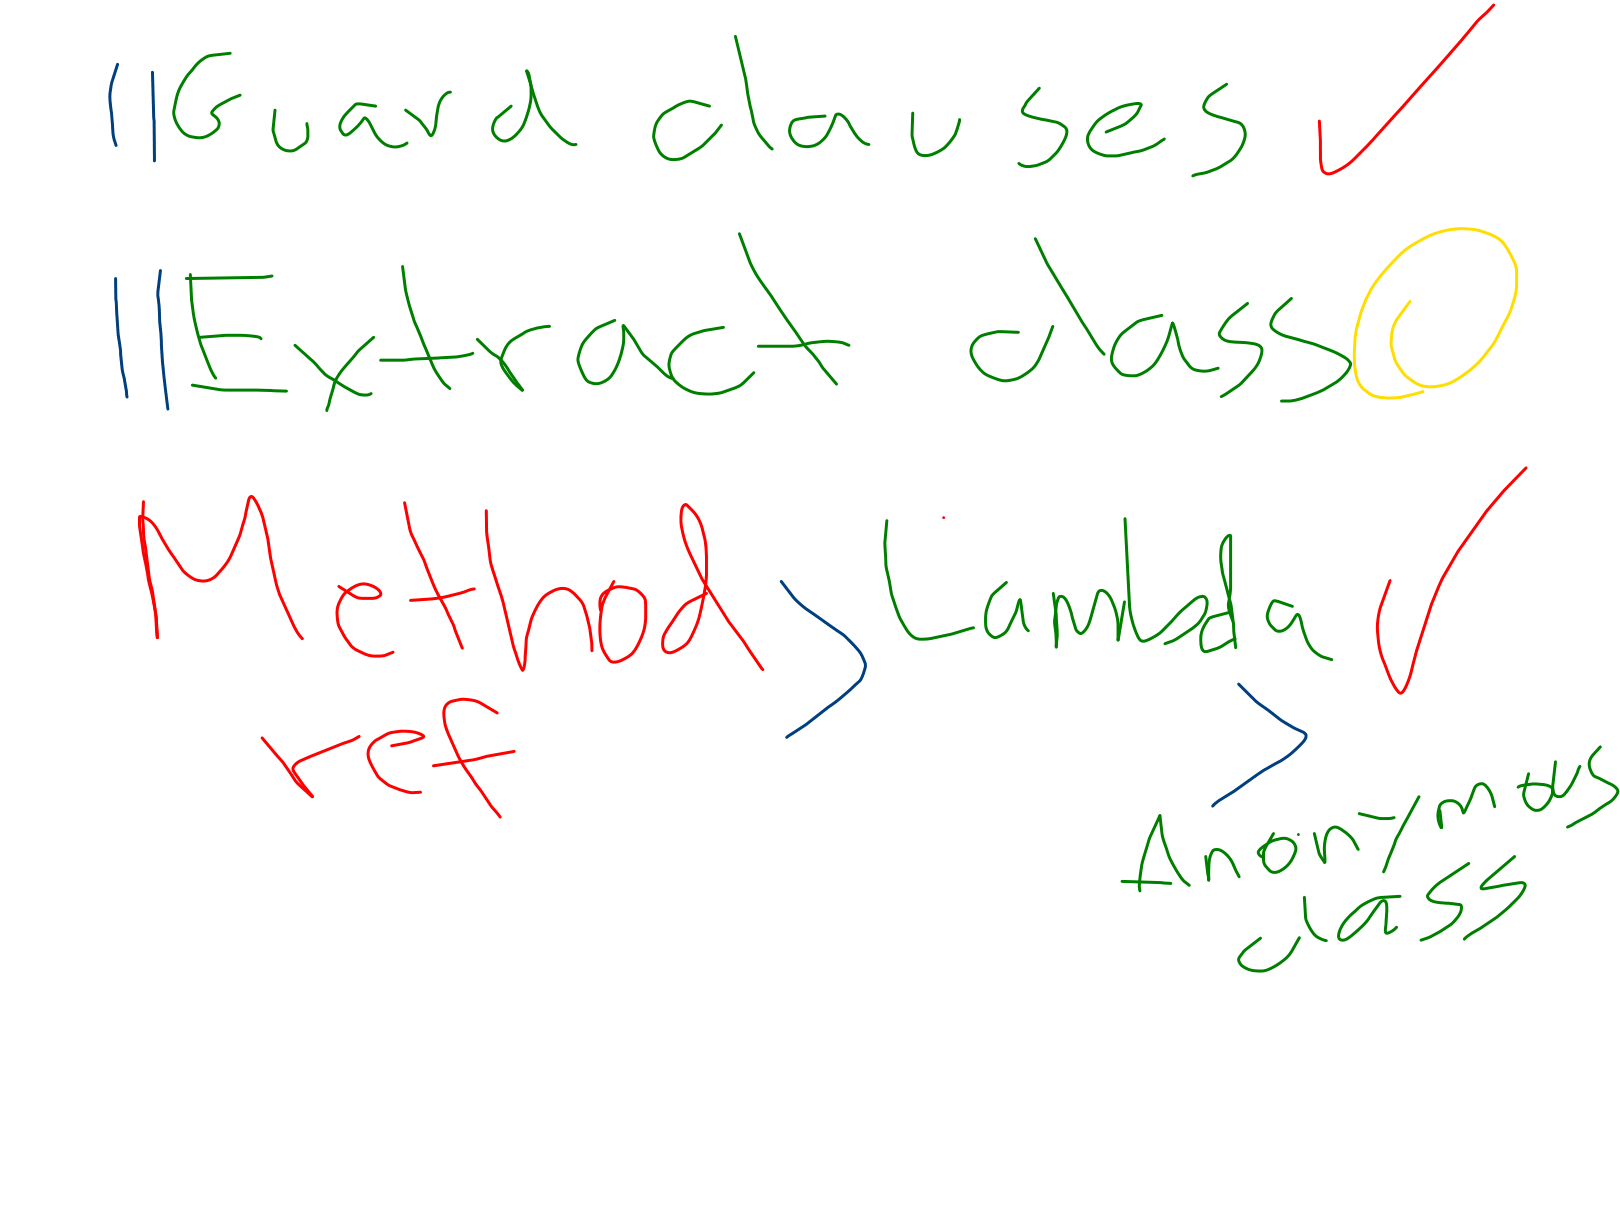 ||Guard clauses ✓
||Extract class
Method > Lambda ✓
ref >
Anonymous
class